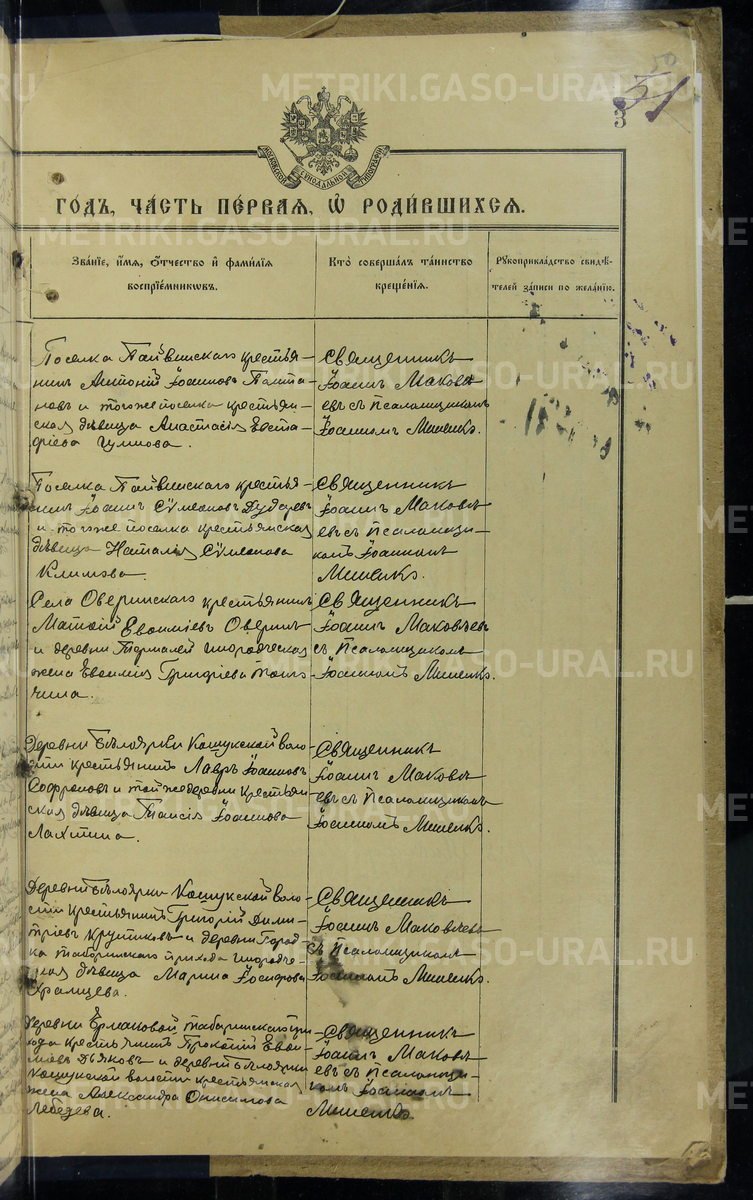 METRIKI.GASO-URAL.RU
51
3
МОСКОВСКОЙ СѴНОДАЛЬНОЙ ТИПОГРАФІИ
ГОДЪ, ЧАСТЬ ПЕРВАЯ, Ѡ РОДИВШИХСЯ.
Званіе, имя, отчество и фамилія
воспріемниковъ.
Кто совершалъ таинство
крещенія.
Рукоприкладство свидѣ-
телей записи по желанію.
Поселка крестья-
нинъ Антоній Іоанновъ
и тогоже поселка крестьян-
ская дѣвица Анастасія Евста-
фіева
Священникъ
Іоаннъ Маковѣ
евъ съ псаломщикомъ
Іоанномъ Мишенко.
Поселка крестья-
нинъ Іоаннъ Сѵмеоновъ Дударевъ
и тогоже поселка крестьянская
дѣвица Наталія Сѵмеонова
Климова.
Священникъ
Іоаннъ Маковѣ
евъ съ псаломщи-
комъ Іоанномъ
Мишенко.
Села Оверинскаго крестьянинъ
Матѳій Евѳиміевъ Оверинъ
и деревни инородческая
жена Евѳимія Григоріева
Священникъ
Іоаннъ Маковѣевъ
съ псаломщикомъ
Іоанномъ Мишенко.
Деревни Бѣлоярки Кошукской воло-
сти крестьянинъ Лавръ Іоанновъ
Софроновъ и той же деревни крестьян-
ская дѣвица Таисія Іоаннова
Лахтина.
Священникъ
Іоаннъ Маковѣ
евъ съ псаломщикомъ
Іоанномъ Мишенко.
Деревни Бѣлоярки Кошукской воло-
сти крестьянинъ Григорій Дими-
тріевъ Крутиковъ и деревни Город-
ка Табаринскаго прихода инородче-
ская дѣвица Марина Іосифова
Храмцева.
Священникъ
Іоаннъ Маковѣевъ
съ псаломщикомъ
Іоанномъ Мишенко.
Деревни Ермаковой Табаринскаго при-
хода крестьянинъ Прокопій Евѳи-
міевъ Дьяковъ и деревни Бѣлоярки
Кошукской волости крестьянская
жена Александра Онисимова
Лебедева.
Священникъ
Іоаннъ Маковѣ
евъ съ псаломщи-
комъ Іоанномъ
Мишенко